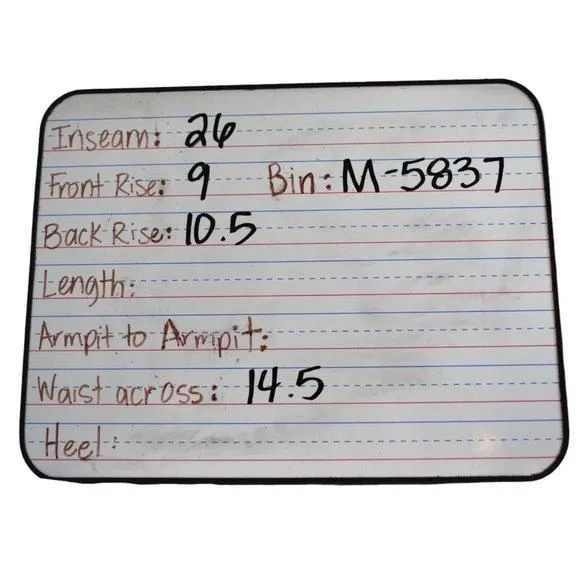 Inseam: 26
Front Rise: 9 Bin: M-5837
Back Rise: 10.5
Length:
Armpit to Armpit:
Waist across: 14.5
Heel: